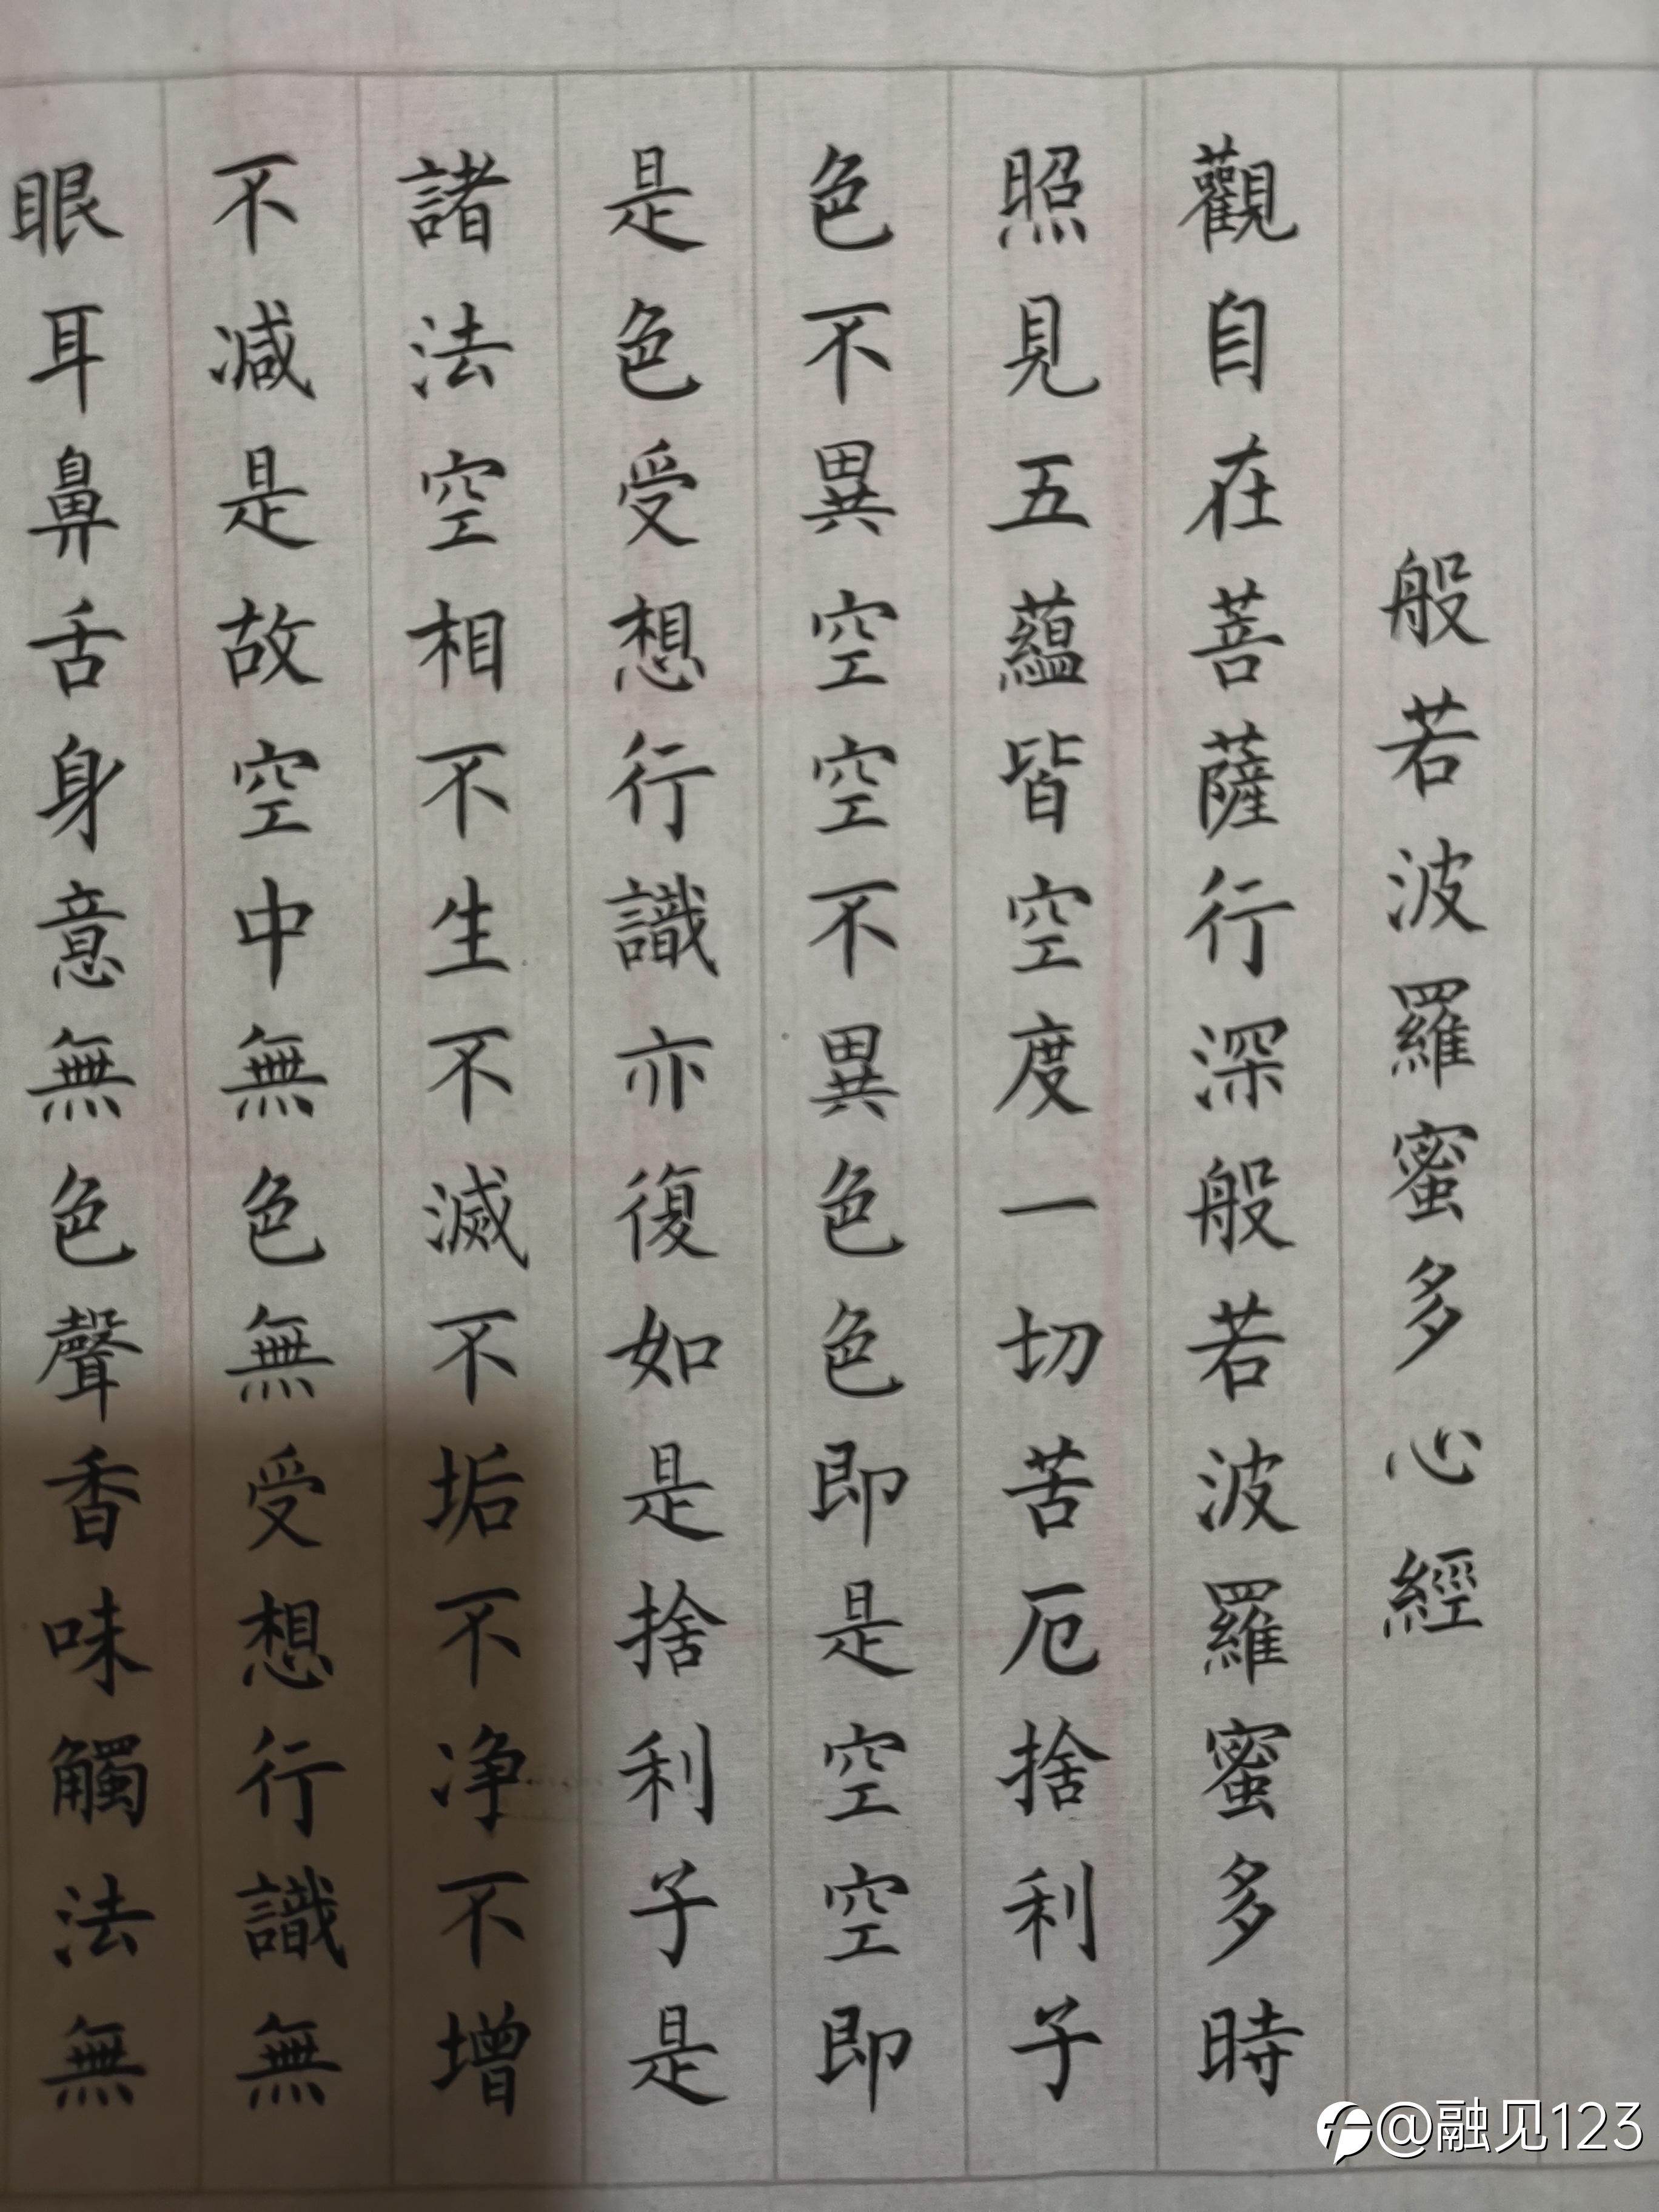 般若波羅蜜多心經
觀自在菩薩行深般若波羅蜜多時
照見五蘊皆空度一切苦厄捨利子
色不異空空不異色色即是空空即
是色受想行識亦復如是捨利子是
諸法空相不生不滅不垢不净不增
不减是故空中無色無受想行識無
眼耳鼻舌身意無色聲香味觸法無
@融见123